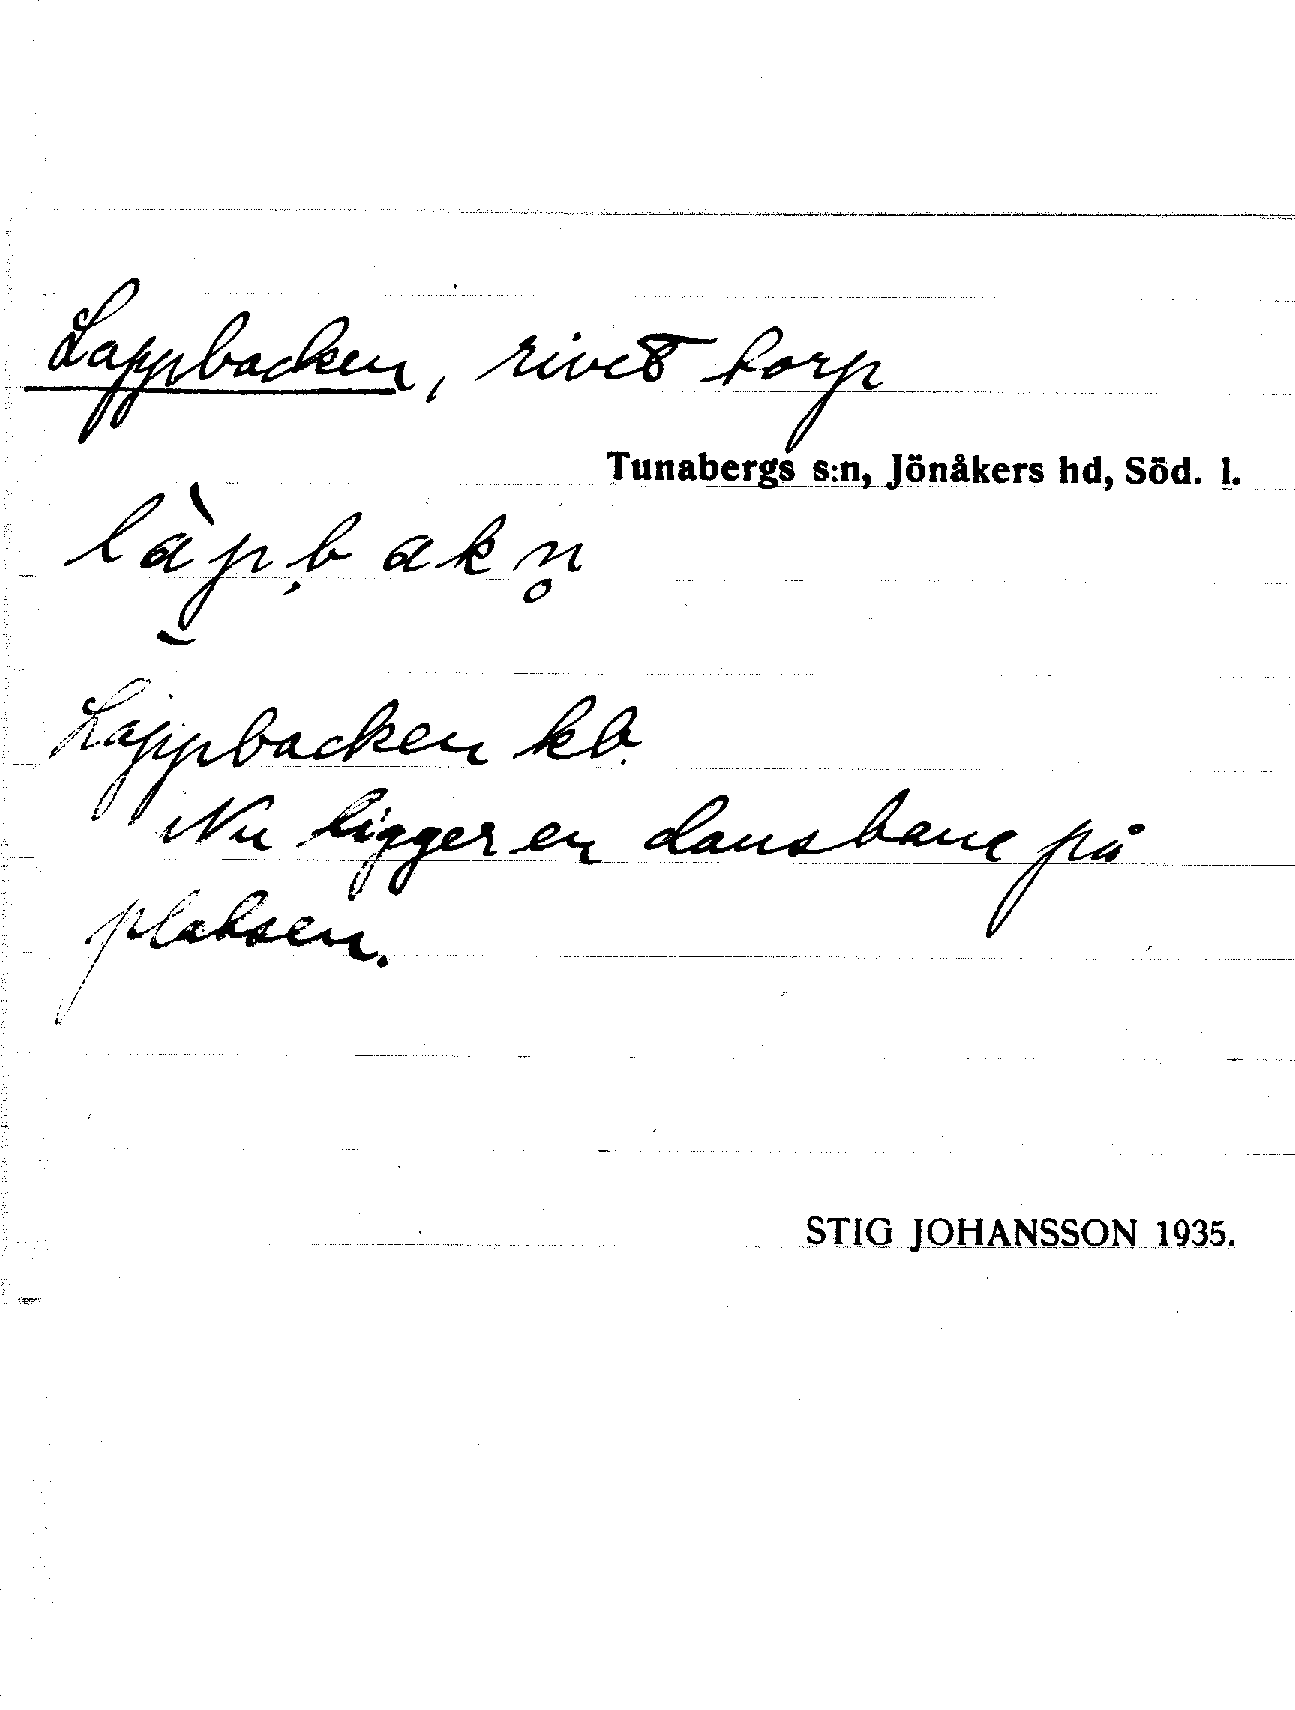 Lappbacken, rivet torp
Tunabergs s:n, Jönåkers hd, Söd. l.
làp̱̆ḅakn̥
Lappbacken kb.
Nu ligger en dansbane på
platsen.
STIG JOHANSSON 1935.